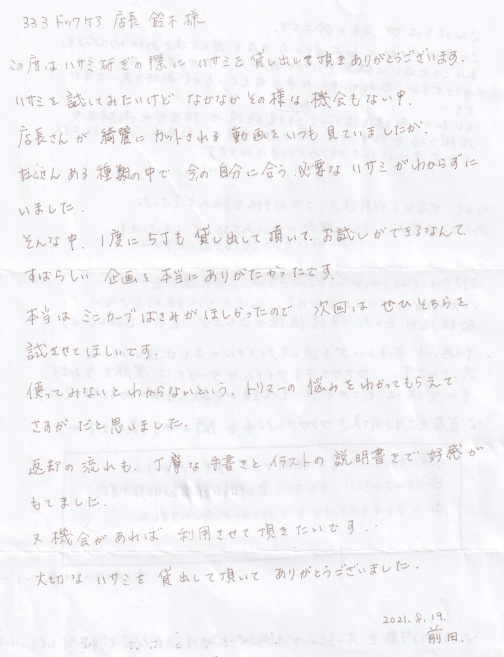 333ドッグケア 店長 鈴木様
この度はハサミ研ぎの際にハサミを貸し出して頂きありがとうございます。
ハサミを試してみたいけど なかなかその様な機会もない中、
店長さんが綺麗にカットされる動画をいつも見ていましたが、
たくさんある種類の中で 今の自分に合う、必要なハサミがわからずに
いました。
そんな中、1度に5丁も貸し出して頂いて、お試しができるなんて
すばらしい企画を本当にありがたかったです。
本当はミニカーブばさみがほしかったので 次回はぜひそちらを
試させてほしいです。
使ってみないとわからないという、トリマーの悩みをわかってもらえて
さすがだと思いました。
返却の流れも、丁寧な手書きとイラストの説明書きで好感が
もてました。
又機会があれば 利用させて頂きたいです。
大切なハサミを貸出して頂いて ありがとうございました。
2021.8.19.
前田.